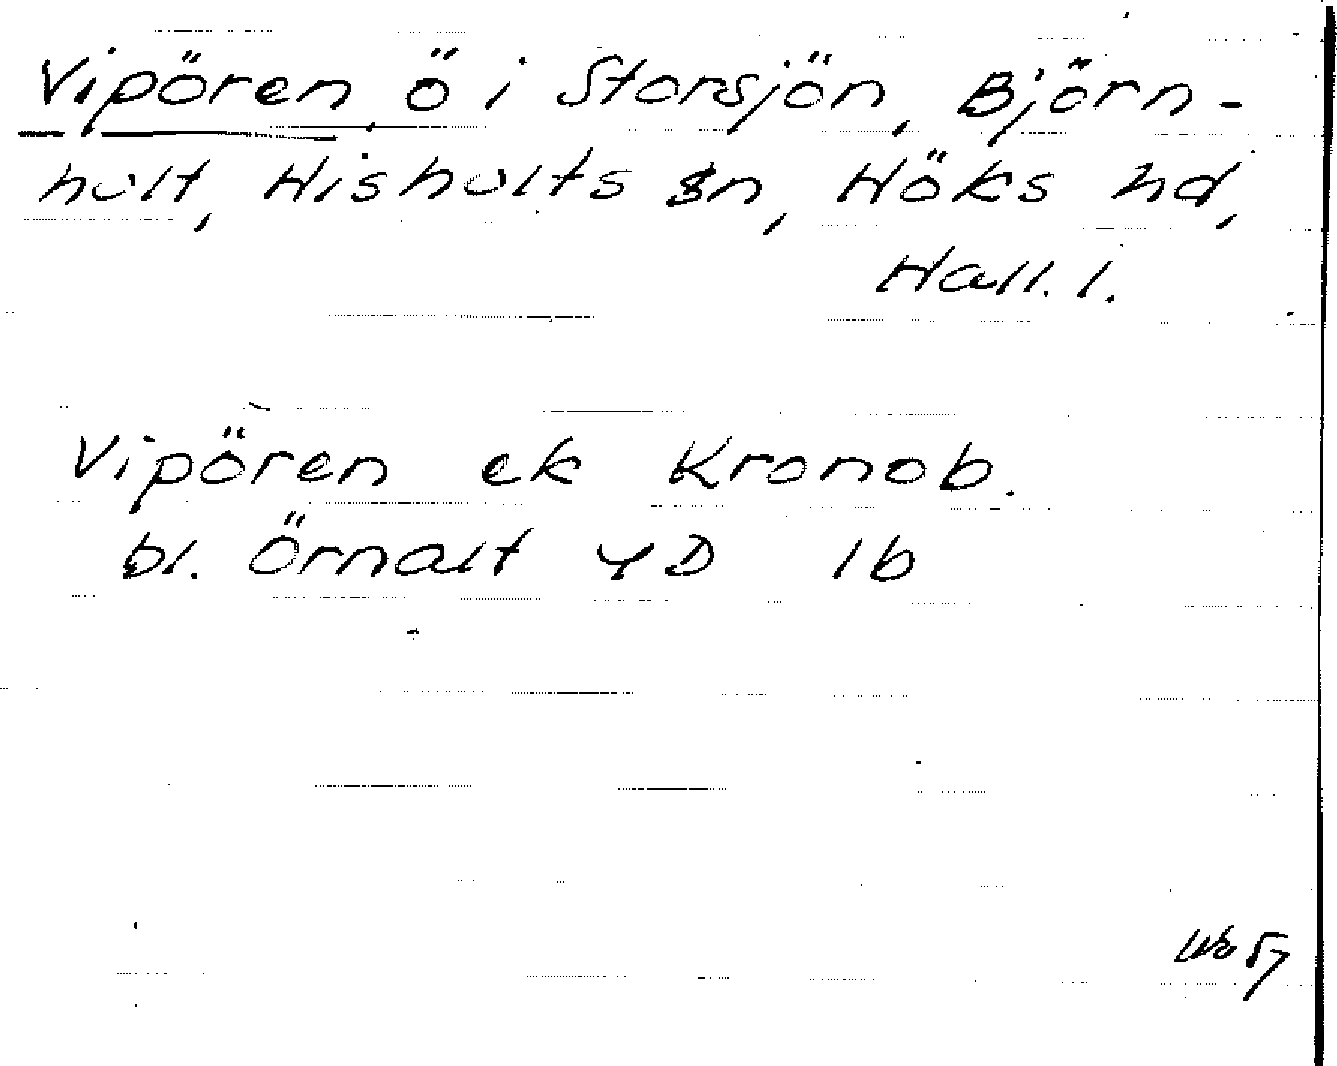 Vipören, ö i Storsjön, Björn-
hult, Hishults sn, Höks hd,
Hall. l.
Vipören ek Kronob.
bl. Örnalt 4D 1b
57